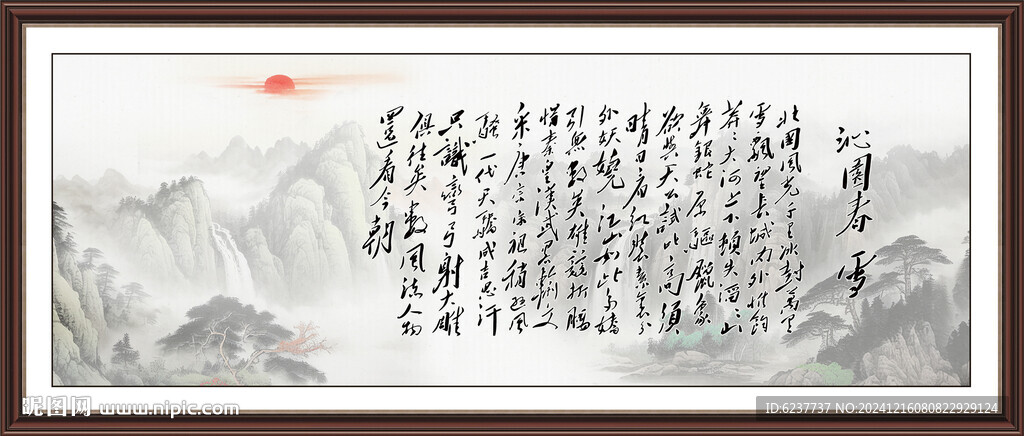 沁園春 雪
北國風光千里冰封萬里
雪飄望長城内外惟餘
莽々大河上下頓失滔々山
舞銀蛇原驅臘象
欲與天公試比高須
晴日看紅裝素裹分
外妖嬈 江山如此多嬌
引無數英雄競折腰
惜秦皇漢武略輸文
采唐宗宋祖稍遜風
騷一代天驕成吉思汗
只識彎弓射大雕
俱往矣數風流人物
還看今朝
昵图网 www.nipic.com
ID:6237737 NO:20241216080822929124